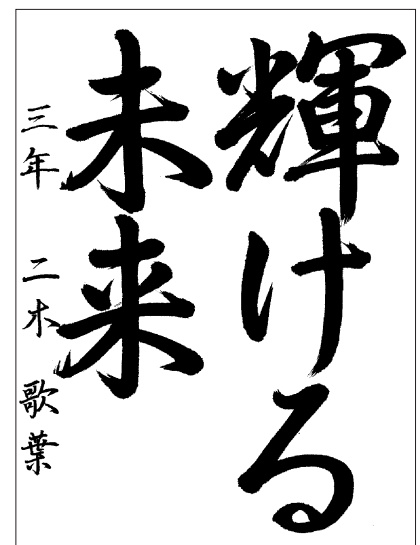 輝ける
未来
三年 二木 歌葉